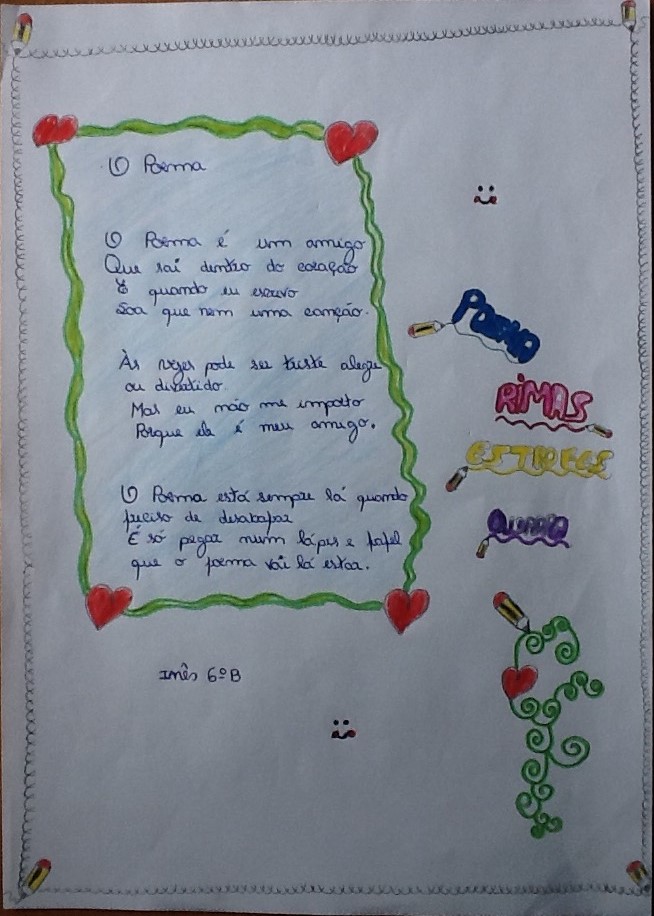 O Poema
O Poema é um amigo
Que sai dentro do coração
E quando eu escrevo
Soa que nem uma canção.
Às vezes pode ser triste alegre
ou divertido
Mas eu não me importo
Porque ele é meu amigo.
O Poema está sempre lá quando
preciso de desabafar
É só pegar num lápis e papel
que o poema vai lá estar.
Inês 6ºB
POEMA
RIMAS
ESTROFES